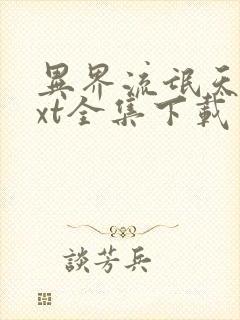 異界流氓天
xt全集下載
談芳兵